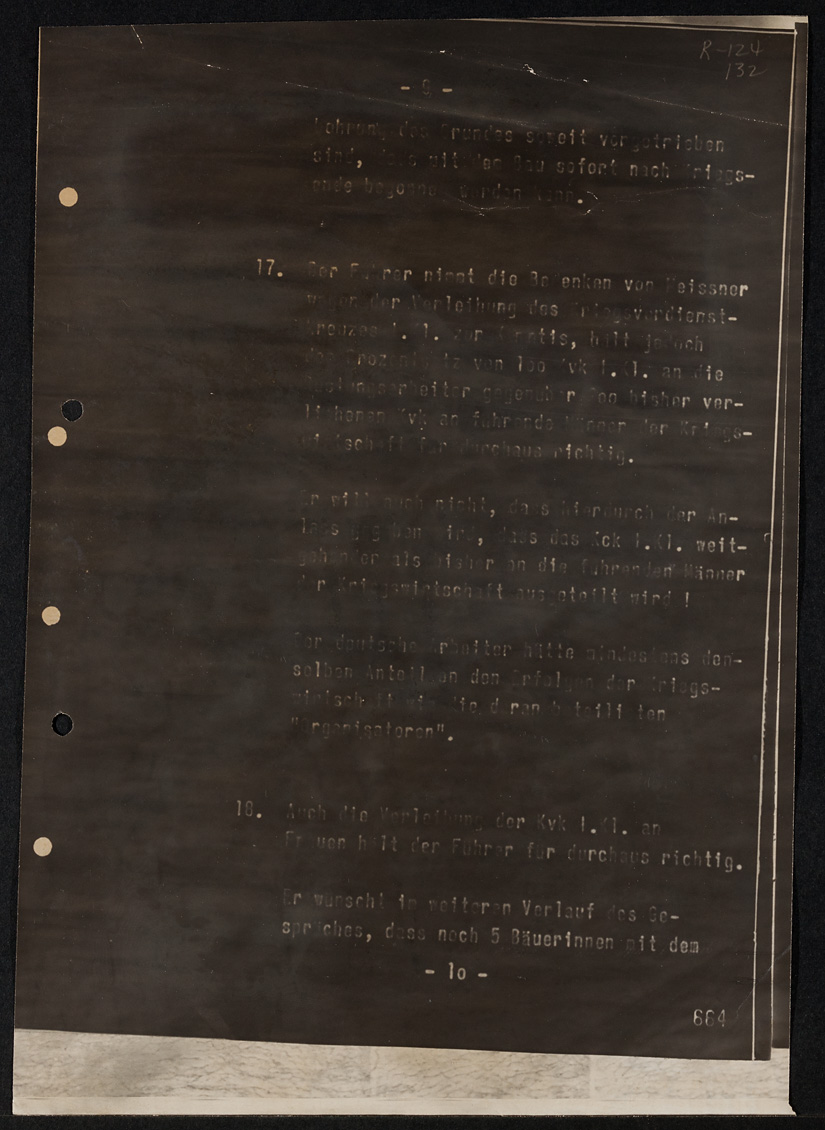 R-124
132
- 9 -
des Grundes soweit vorgetrieben
sind, dass mit dem Bau sofort nach Kriegs-
ende begonnen werden kann.
17. Der Führer nimmt die Bedenken von Meissner
wegen der Verleihung des Kriegsverdienst-
kreuzes I. Kl. zur Kenntnis, hält jedoch
den Prozentsatz von 100 Kvk I.Kl. an die
Rüstungsarbeiter gegenüber den bisher ver-
liehenen Kvk an führende Männer der Kriegs-
wirtschaft für durchaus richtig.
Er will auch nicht, dass hierdurch der An-
lass gegeben wird, dass das Kck I.Kl. weit-
gehender als bisher an die führenden Männer
der Kriegswirtschaft ausgeteilt wird !
Der deutsche Arbeiter hätte mindestens den-
selben Anteil an den Erfolgen der Kriegs-
wirtschaft wie die daran beteiligten
"Organisatoren".
18. Auch die Verleihung der Kvk I.Kl. an
Frauen hält der Führer für durchaus richtig.
Er wünscht im weiteren Verlauf des Ge-
spräches, dass noch 5 Bäuerinnen mit dem
- 1o -
664